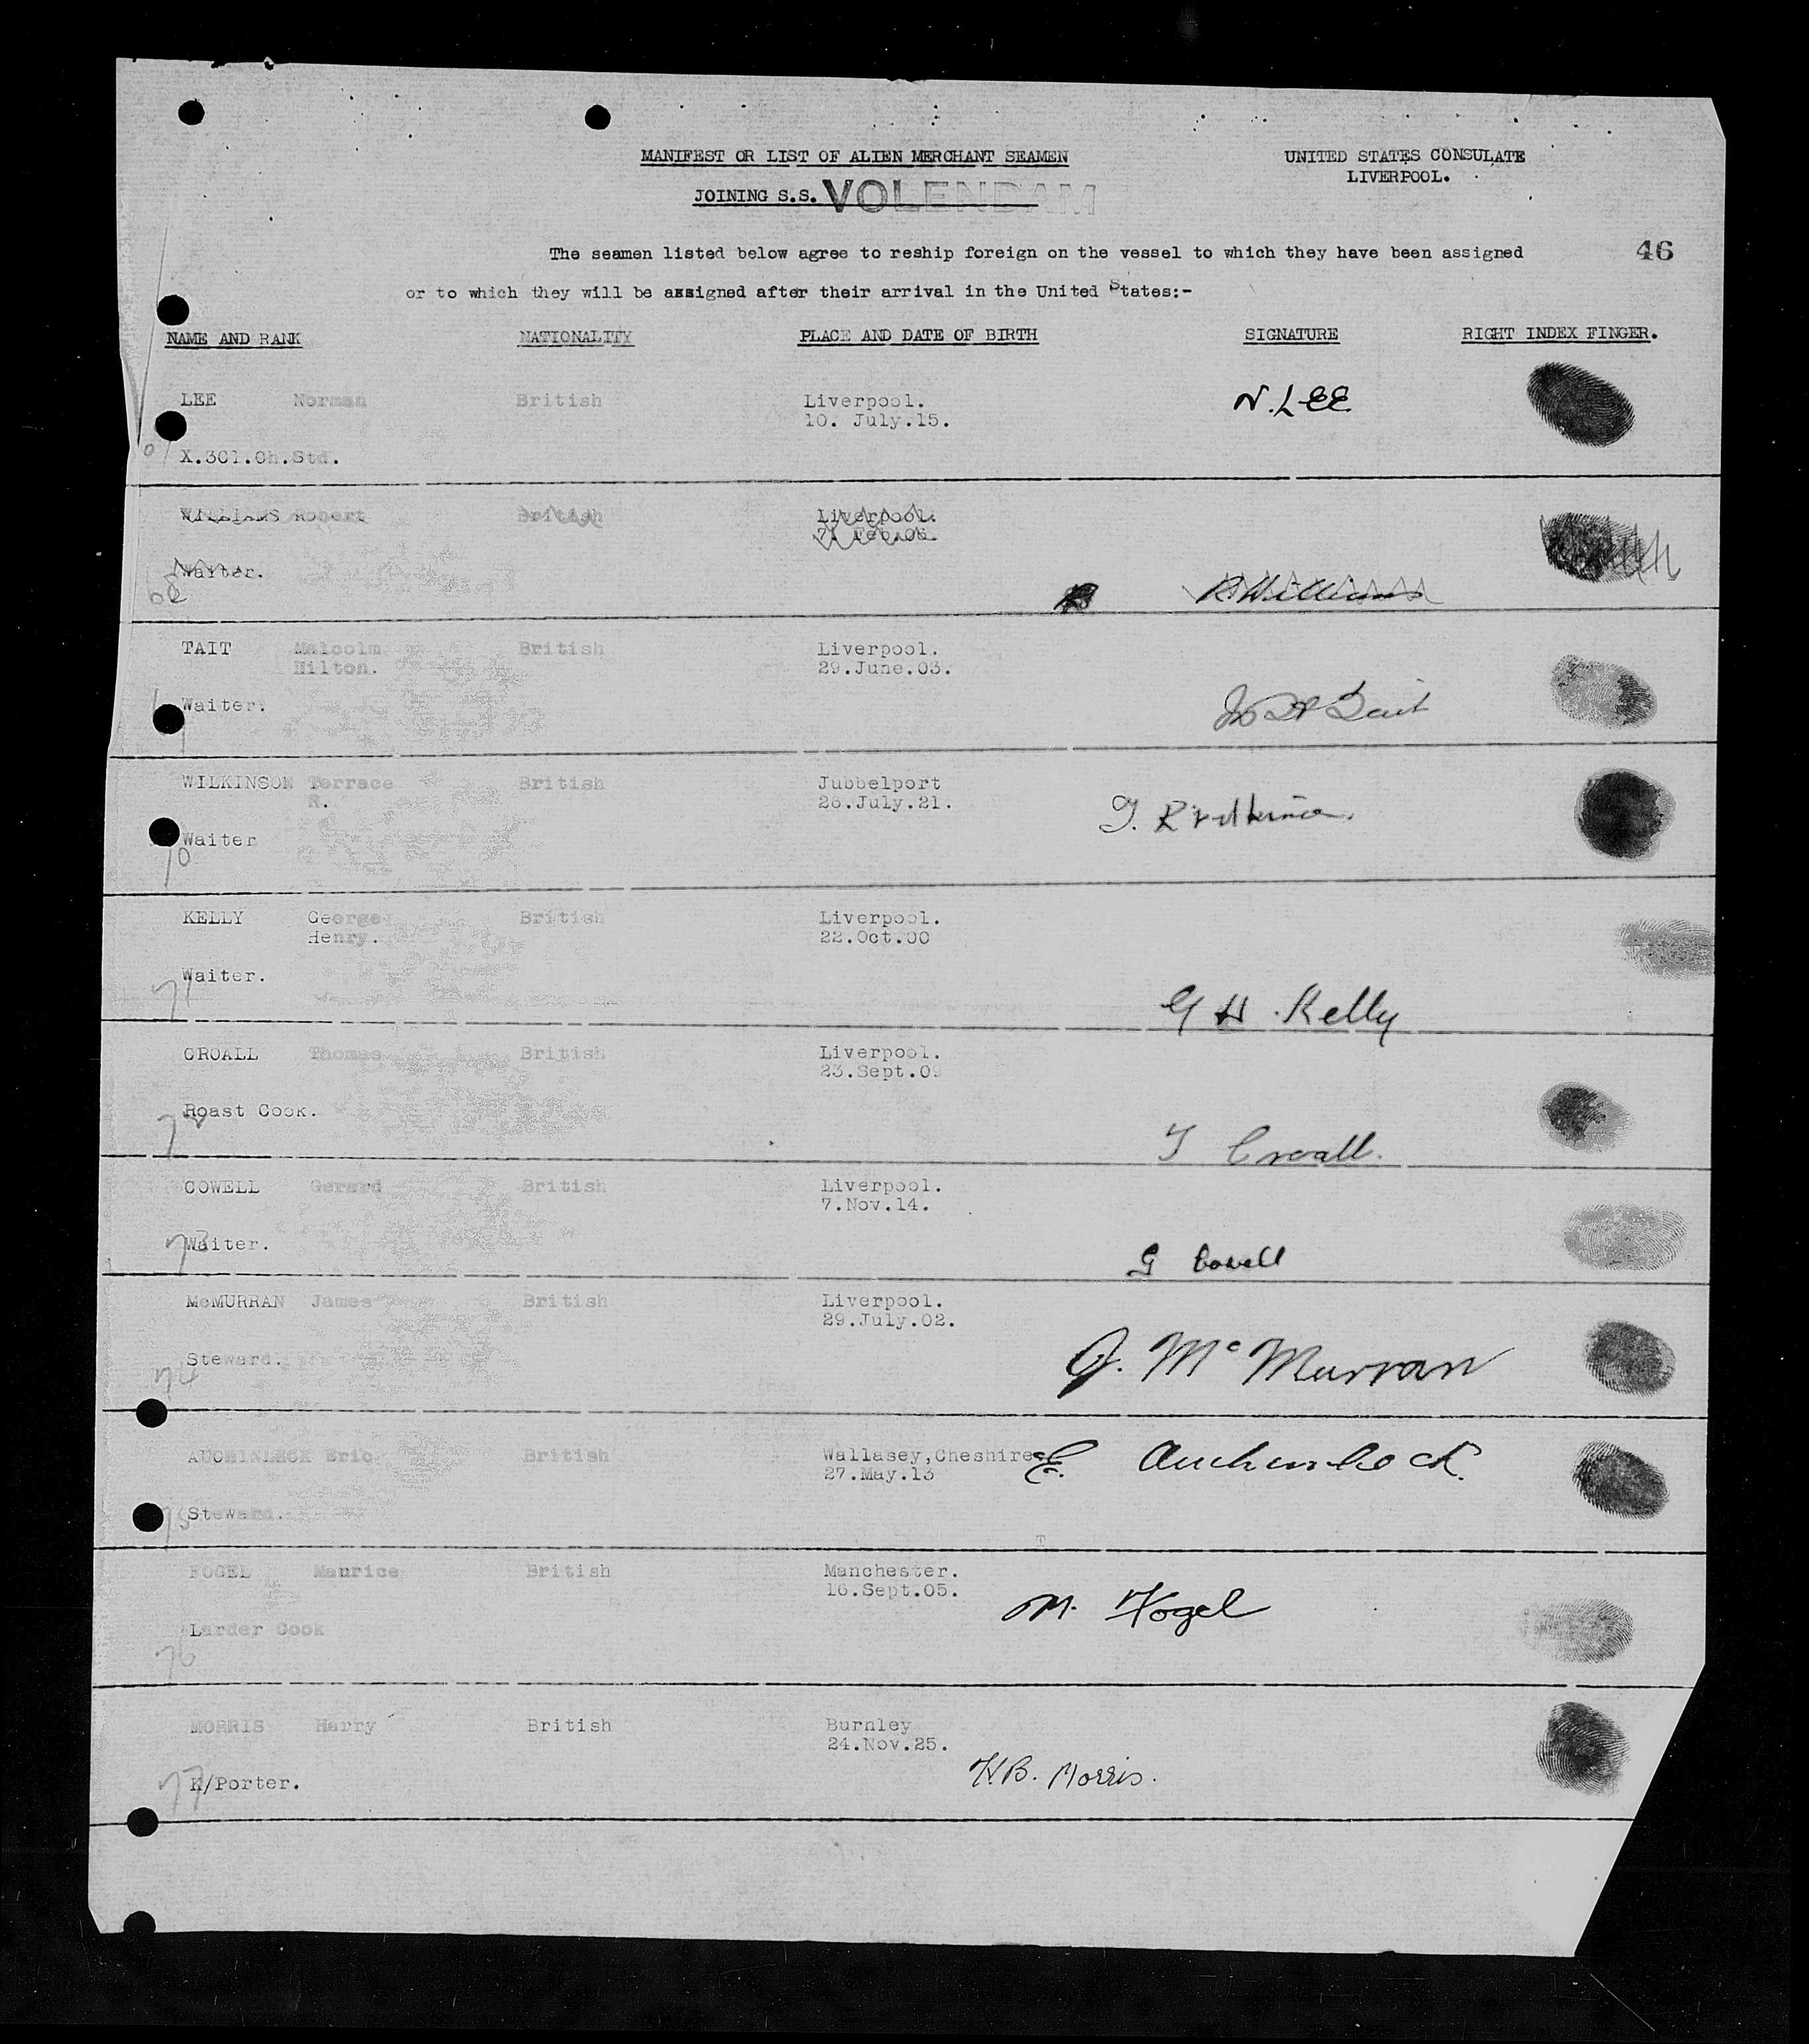 MANIFEST OR LIST OF ALIEN MERCHANT SEAMEN
UNITED STATES CONSULATE
LIVERPOOL.
JOINING S.S. VOLENDAM
The seamen listed below agree to reship foreign on the vessel to which they have been assigned
46
or to which they will be assigned after their arrival in the United States:-
NAME AND RANK NATIONALITY PLACE AND DATE OF BIRTH SIGNATURE RIGHT INDEX FINGER.
LEE Norman British Liverpool. N. LEE
10. July.15.
X.301.Ch.Std.
WILLIAMS Robert British Liverpool.
7. Feb.06.
Waiter.
68 R. Williams
TAIT Malcolm British Liverpool.
Hilton. 29.June.03.
Waiter. Tait
WILKINSON Terrace British Jubbelport
R. 26.July.21.
T. R
Waiter
70
KELLY George British Liverpool.
Henry. 22.Oct.00
Waiter.
71 G H Kelly
CROALL Thomas British Liverpool.
23.Sept.09
Roast Cook.
72 T Croall.
COWELL Gerard British Liverpool.
7.Nov.14.
73 Waiter. G Cowell
McMURRAN James British Liverpool.
29.July.02.
Steward. J. McMurran
74
AUCHINLECK Eric British Wallasey,Cheshire E. Auchinleck.
27.May.13
75 Steward.
T
FOGEL Maurice British Manchester.
16.Sept.05. M. Fogel
Larder Cook
76
MORRIS Harry British Burnley
24.Nov.25.
H.B. Morris.
77 K/Porter.